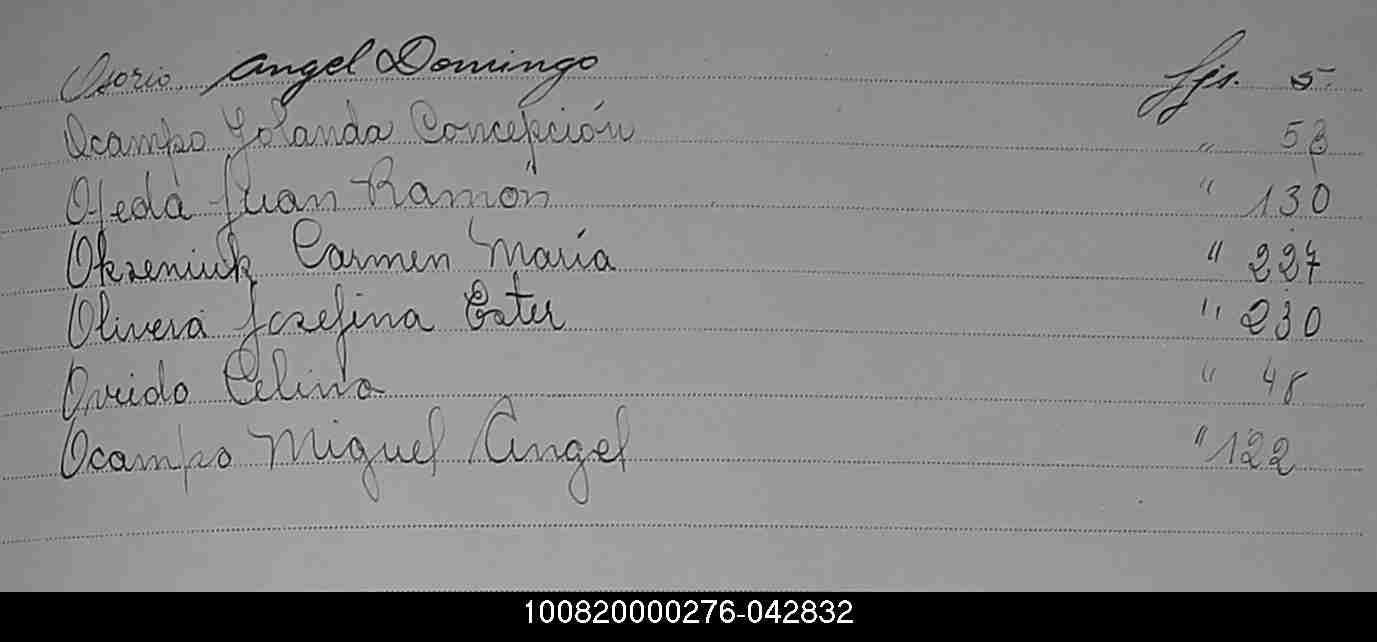 Osorio Angel Domingo Fjs. 5.
Ocampo Yolanda Concepción " 53
Ojeda Juan Ramón " 130
Okseniuk Carmen María " 227
Olivera Josefina Ester " 230
Oviedo Celina " 48
Ocampo Miguel Angel " 122
100820000276-042832